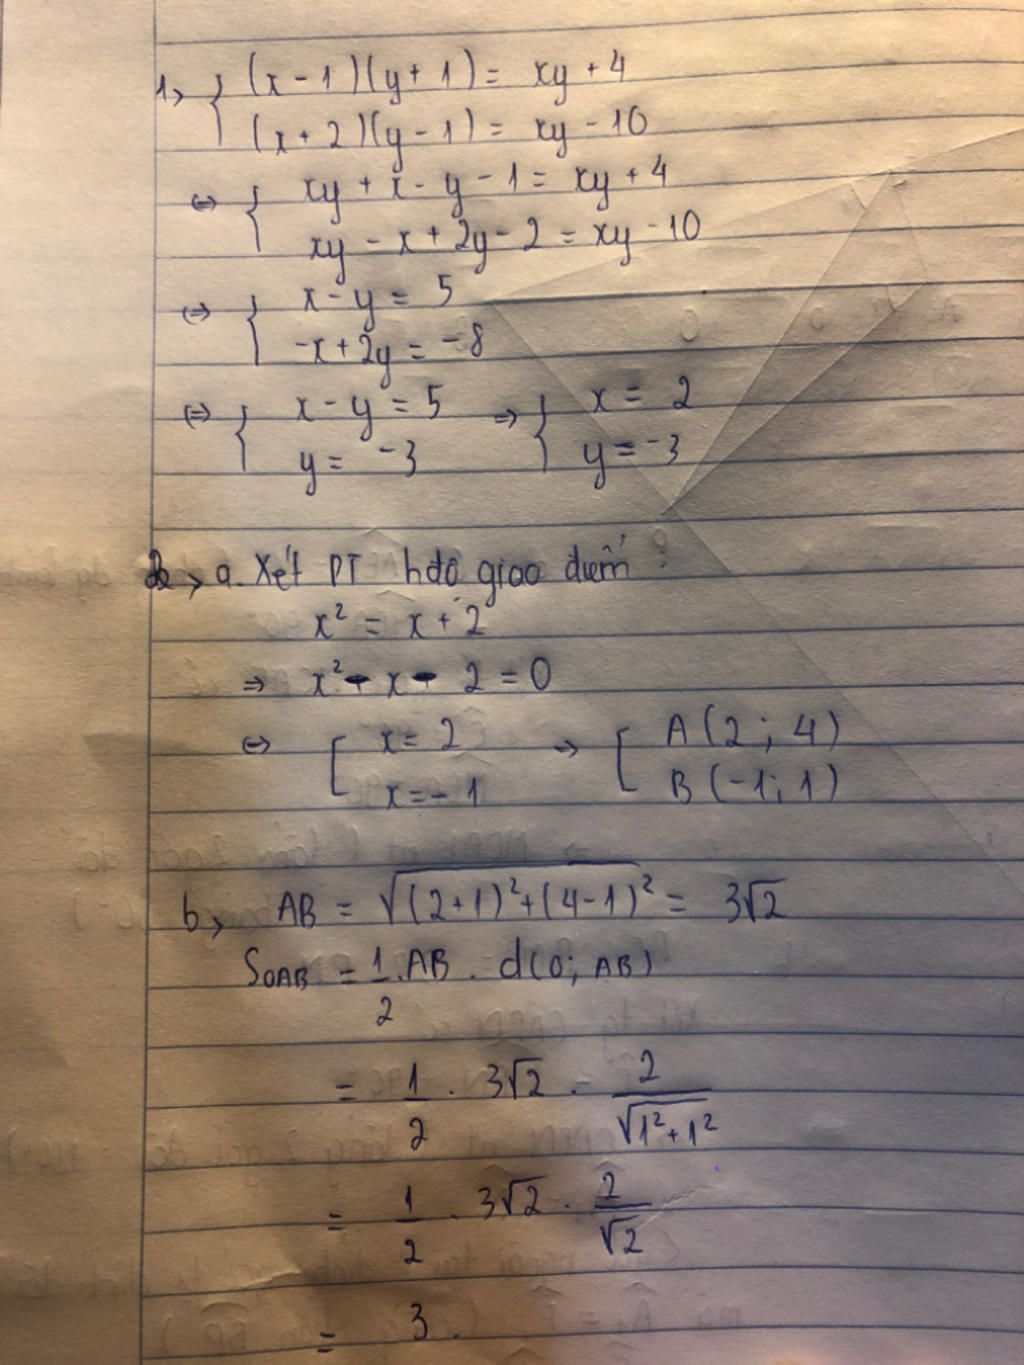 1, { (x - 1)(y + 1) = xy + 4
(x + 2)(y - 1) = xy - 10
⇔ { xy + x - y - 1 = xy + 4
xy - x + 2y - 2 = xy - 10
⇔ { x - y = 5
-x + 2y = -8
⇔ { x - y = 5 ⇒ { x = 2
y = -3 y = -3
2, a. Xét PT hđộ giao điểm
x² = x + 2
⇒ x² - x - 2 = 0
⇔ [ x = 2 → [ A (2 ; 4)
x = -1 B (-1; 1)
b, AB = √((2+1)² + (4-1)²) = 3√2
SOAB = 1/2 . AB . d(O; AB)
= 1/2 . 3√2 . 2/√(1² + 1²)
= 1/2 . 3√2 . 2/√2
= 3.